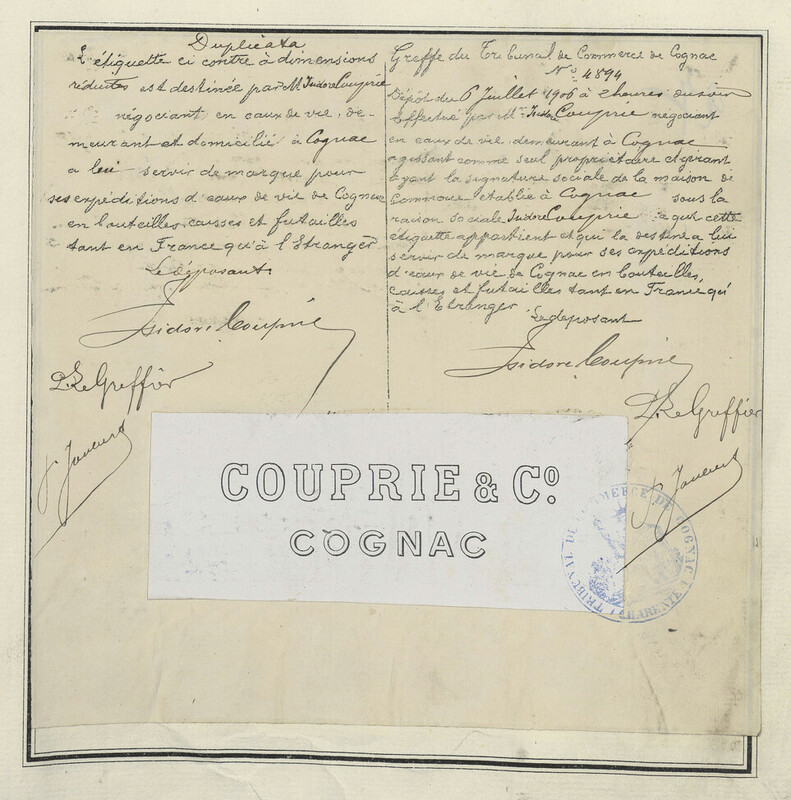 Duplicata
L'étiquette ci contre à dimensions
réduites est destinée par M. Isidore Couprie
négociant en eaux de vie, de-
meurant et domicilié à Cognac
a lui servir de marque pour
ses expéditions d'eaux de vie de Cognac
en bouteilles, caisses et futailles
tant en France qu'à l'Etranger
Le déposant
Isidore Couprie
P. Le Greffier
Greffe du Tribunal de Commerce de Cognac
N° 4894
Dépôt du 6 Juillet 1906 à 2 heures du soir
Effectué par Mr Isidore Couprie négociant
en eaux de vie demeurant à Cognac
agissant comme seul propriétaire et gérant
ayant la signature sociale de la maison de
Commerce établie à Cognac sous la
raison sociale Isidore Couprie à qui cette
étiquette appartient et qui la destine a lui
servir de marque pour ses expéditions
d'eaux de vie de Cognac en bouteilles,
caisses et futailles tant en France qu'
à l'Etranger
Le déposant
Isidore Couprie
P. Le Greffier
COUPRIE & Co.
COGNAC
TRIBUNAL DE COMMERCE DE COGNAC (CHARENTE)